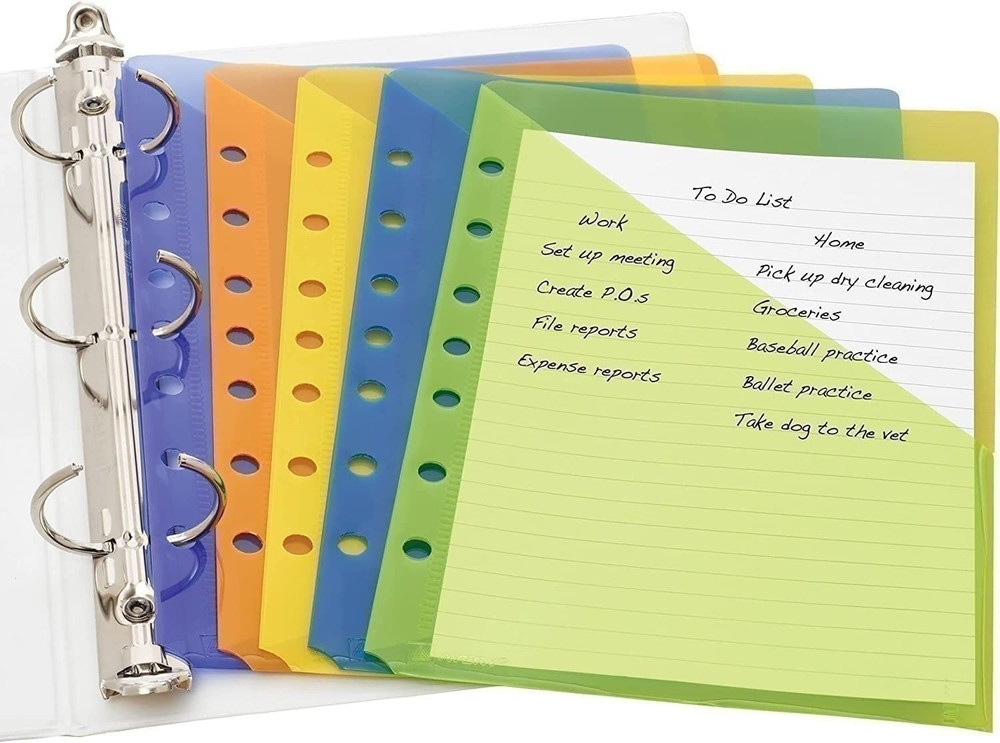 To Do List
Work
Set up meeting
Create P.O.s
File reports
Expense reports
Home
Pick up dry cleaning
Groceries
Baseball practice
Ballet practice
Take dog to the vet